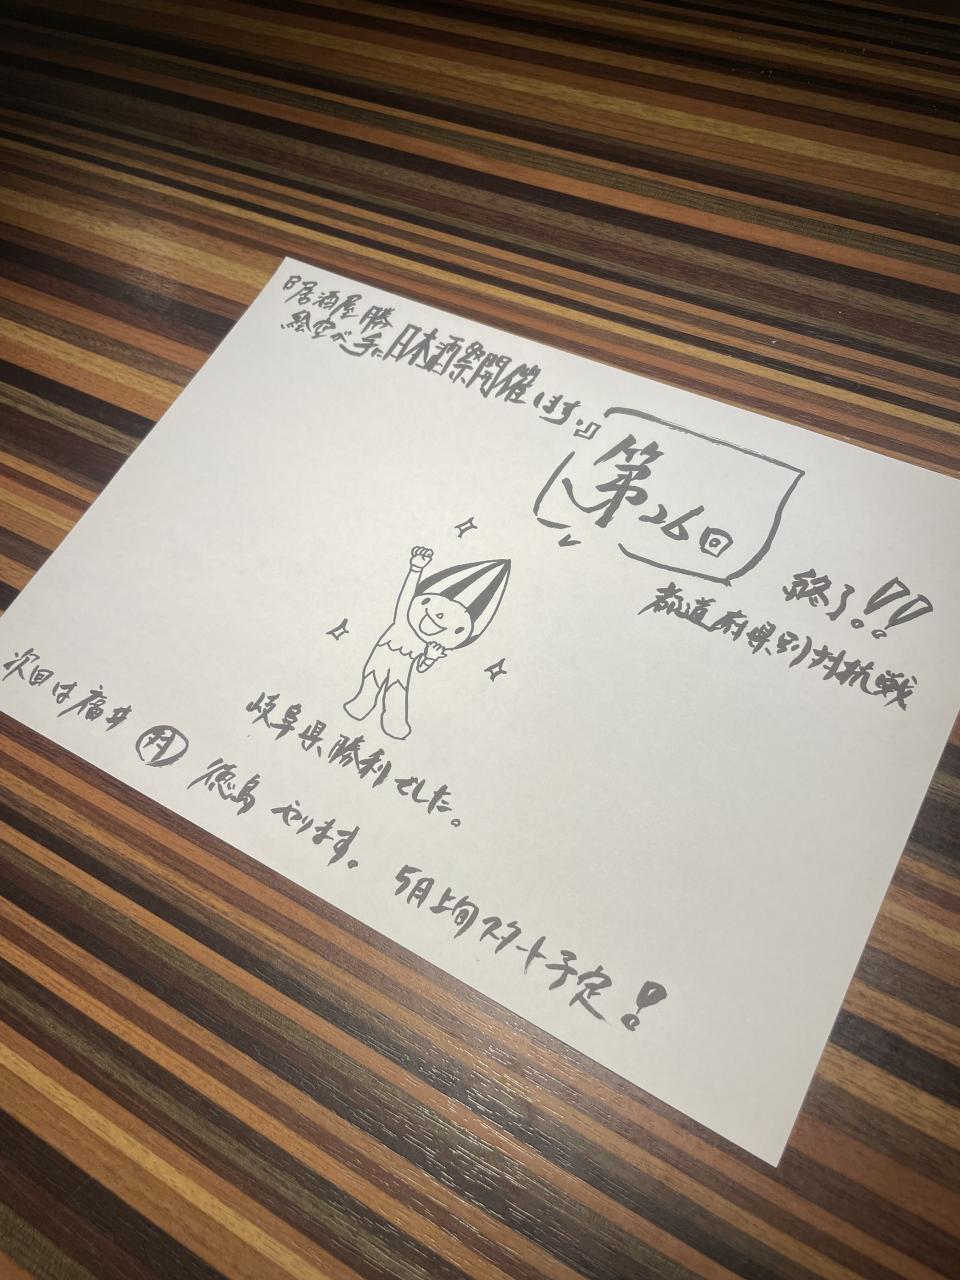 『居酒屋 勝手に日本酒祭開催します。』
絵空が
第26回
終了!!
都道府県別対抗戦
岐阜県勝利でした。
次回は福井 対 徳島 やります。
5月上旬スタート予定!